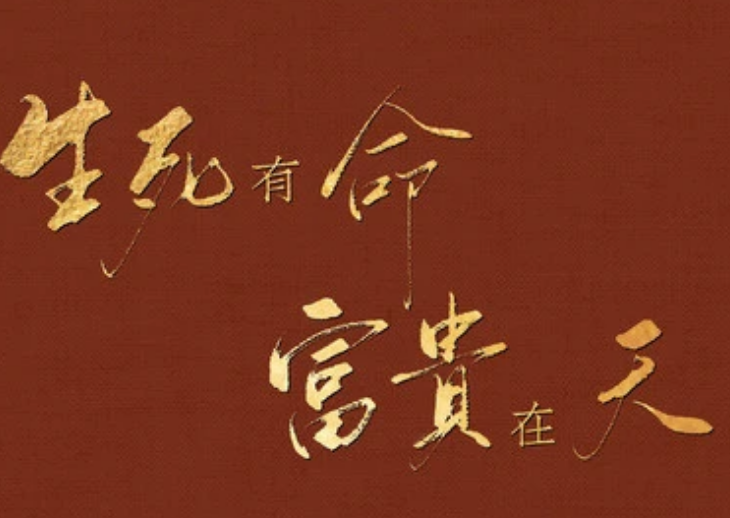 生死有命
富貴在天